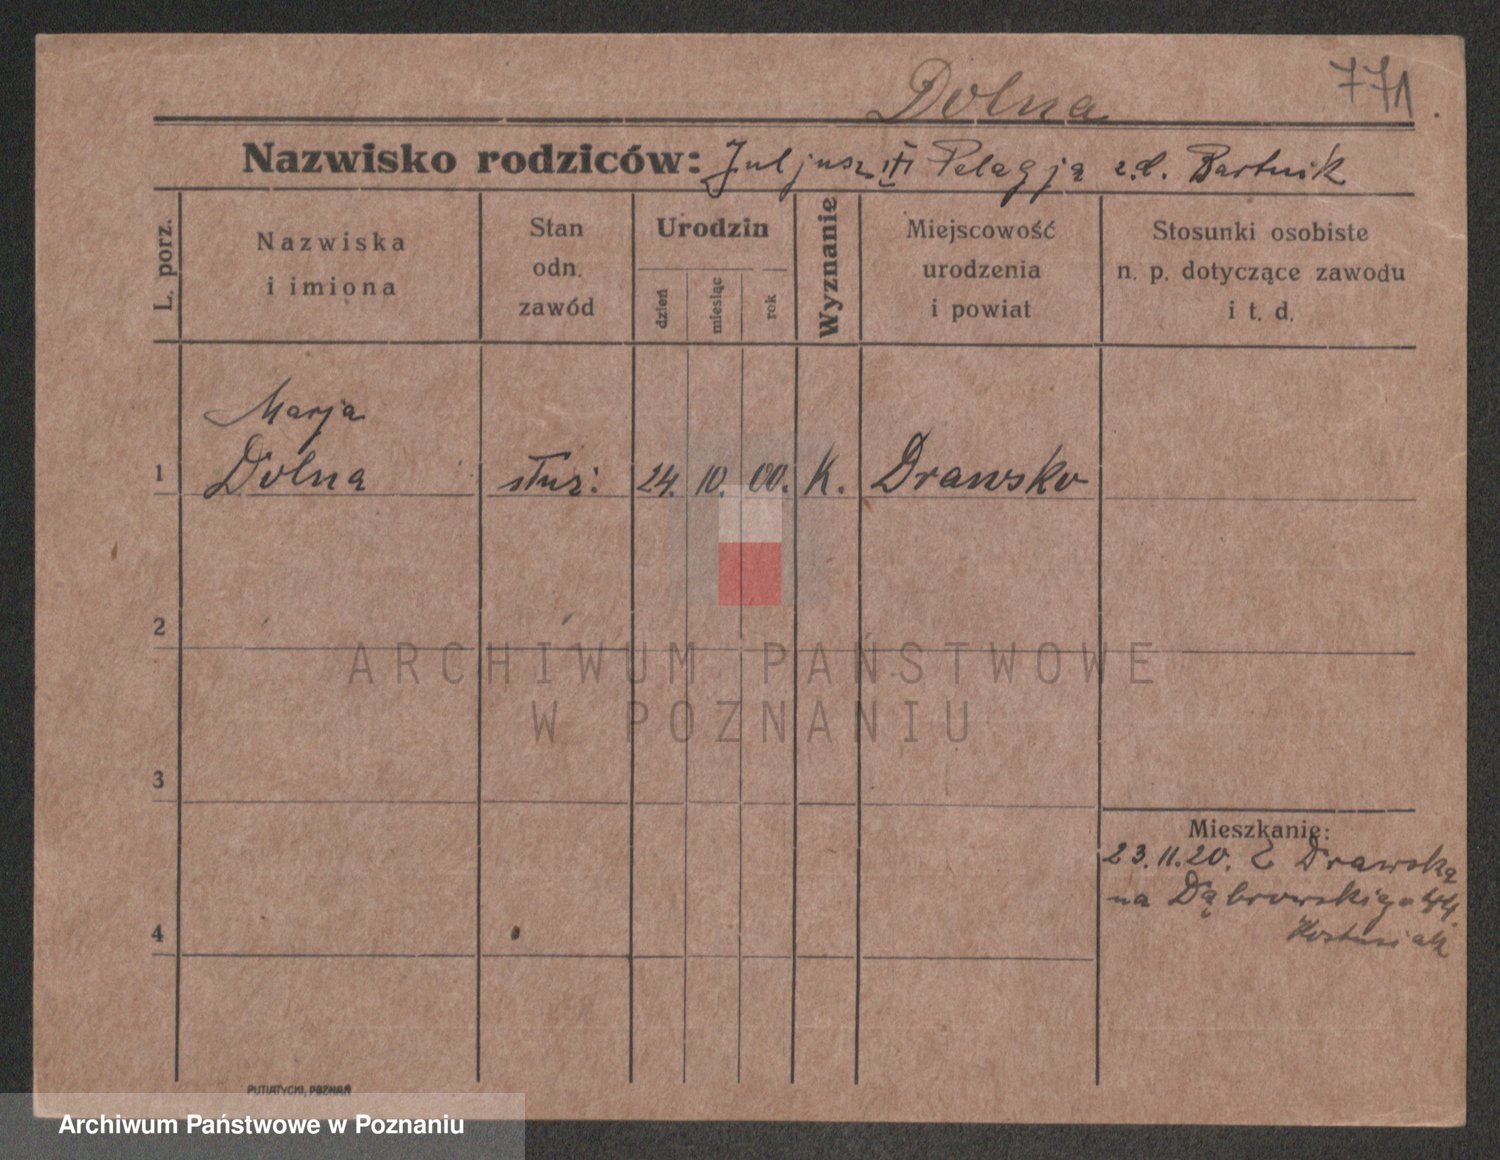 Dolna 771.
Nazwisko rodziców: Juljusz iłi Pelagja z.d. Bartnik
L. porz.
Nazwiska i imiona
Stan odn. zawód
Urodzin
dzień miesiąc rok
Wyznanie
Miejscowość urodzenia i powiat
Stosunki osobiste n. p. dotyczące zawodu i t. d.
Marja
1 Dolna służ: 24. 10. 00. K. Drawsko
2
3
4
Mieszkanie:
23.11.20. Z Drawska
na Dąbrowskiego 44.
PUTIATYCKI, POZNAŃ
ARCHIWUM PAŃSTWOWE
W POZNANIU
Archiwum Państwowe w Poznaniu